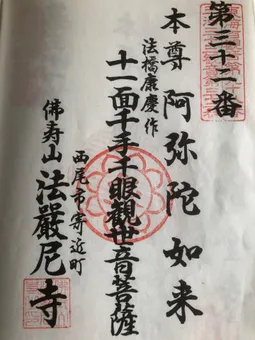 第三十二番
本尊 阿弥陀如来
法橋康慶作
十一面千手千眼觀世音菩薩
西尾市寄近町
佛寿山 法厳尼寺